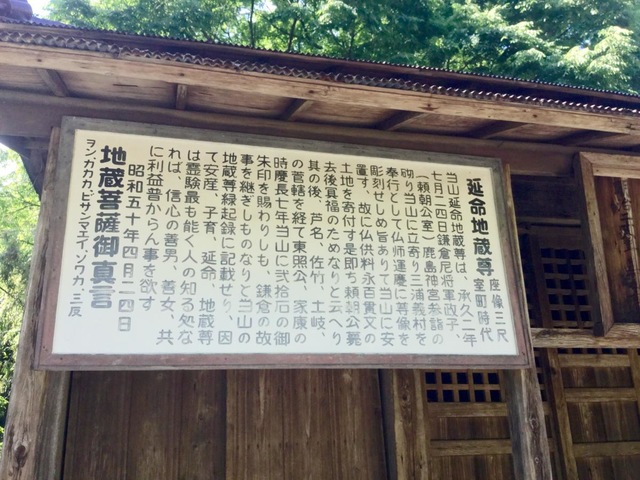 延命地蔵尊 座像三尺
室町時代
当山延命地蔵尊は、承久二年
七月二四日鎌倉尼将軍政子、
(頼朝公室)鹿島神宮参詣の
砌り当山に立寄り三浦義村を
奉行として仏師運慶に尊像を
彫刻せしめ旨ありて当山に安
置す、故に仏供料永百貫文の
土地を寄付す是即ち頼朝公薨
去後冥福のためなりと云へり
其の後、芦名、佐竹、土岐、
の菅轄を経て東照公、家康の
時慶長七年当山に弐拾石の御
朱印を賜わりしも、鎌倉の故
事を継ぎしものなりと当山の
地蔵尊縁起録に記載せり、因
て安産、子育、延命、地蔵尊
は霊験最も能く人の知る処な
れば、信心の善男、善女、共
に利益昔からん事を欲す
昭和五十年四月二四日
地蔵菩薩御真言
ヲン、カカカ、ビサンマエイ、ソワカ、三反